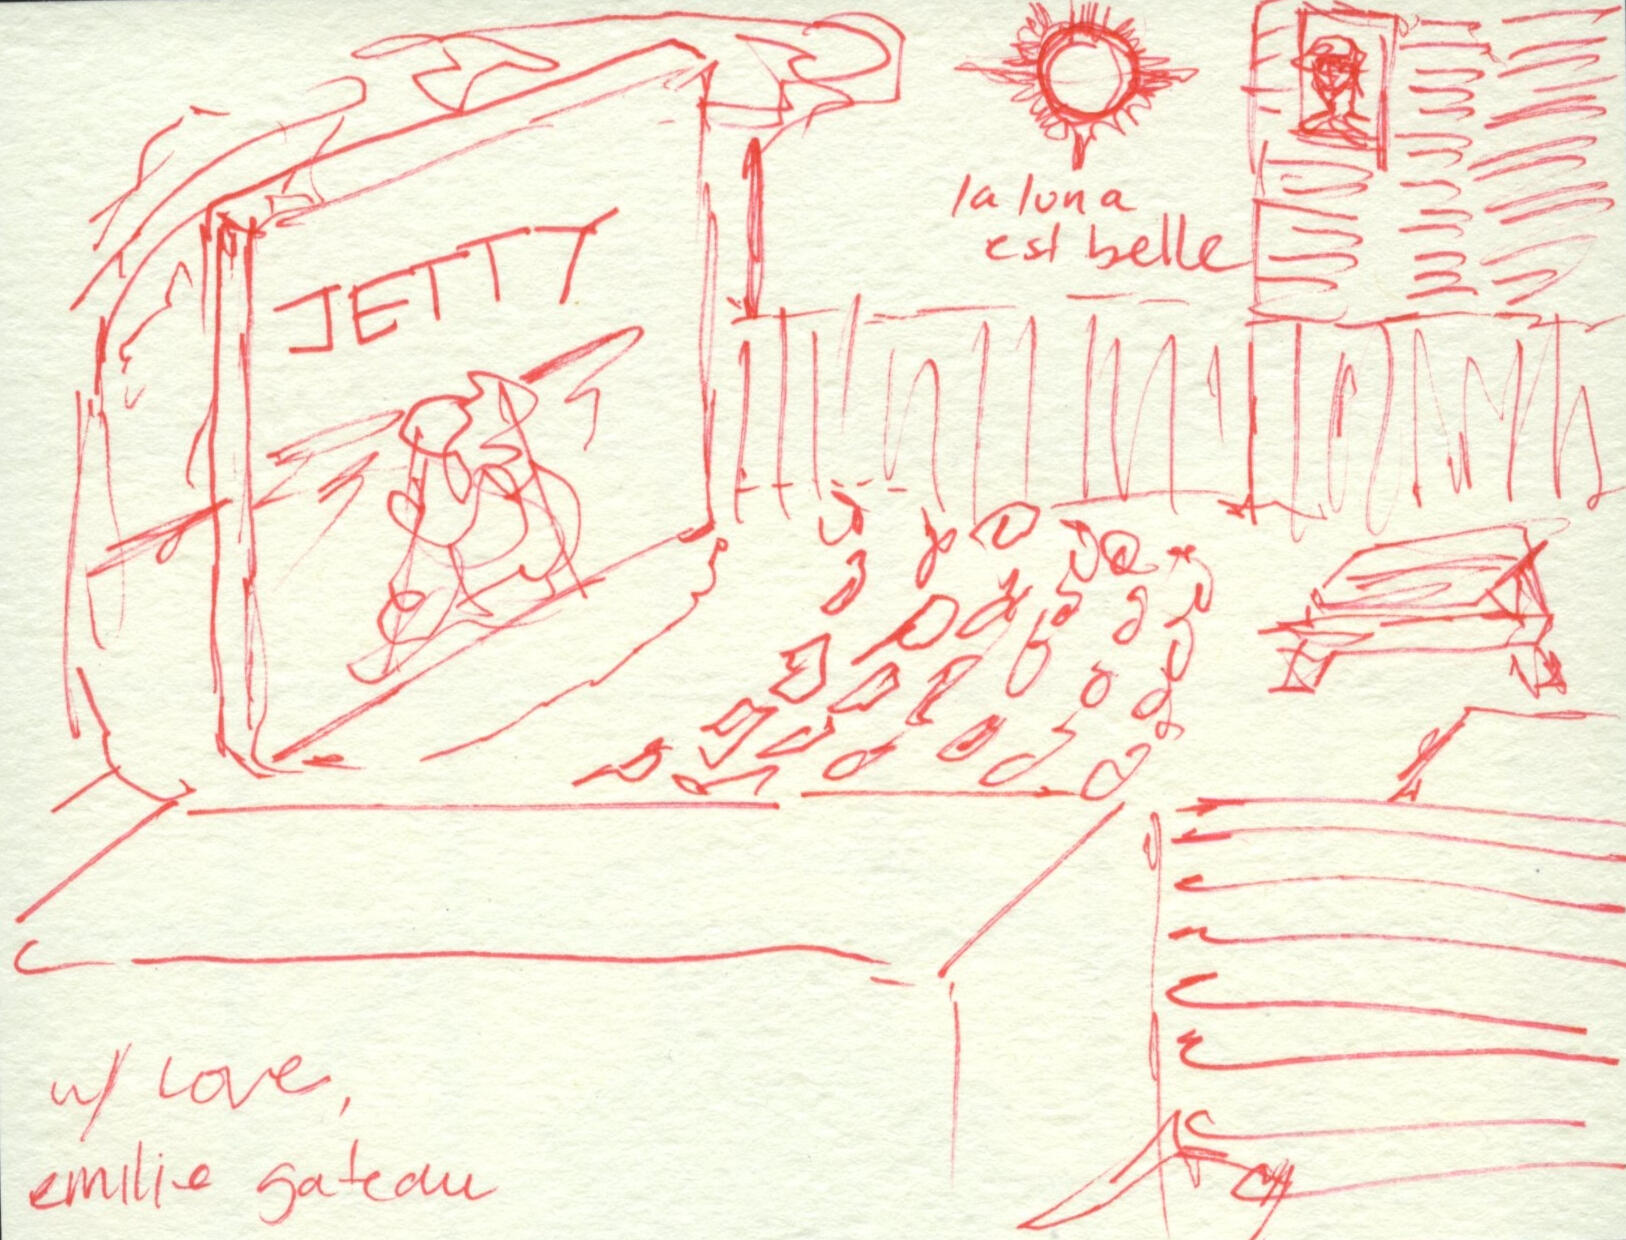 JETTY
la luna
est belle
w/ love,
emilie gateau